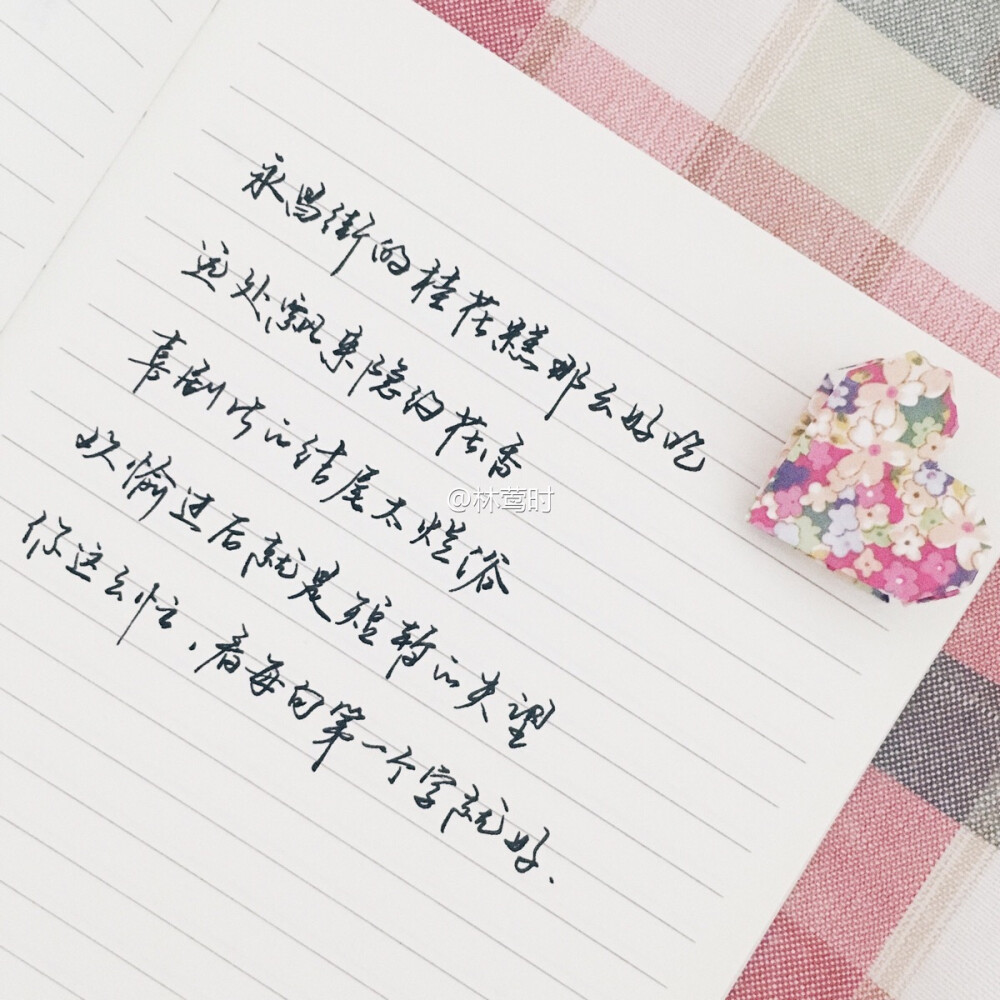 永昌街的桂花糕那么好吃
远处飘来隐约花香
喜剧片的结尾太烂俗
欢愉过后就是短暂的失望
你这么忙，看每句第一个字就好.
@林莺时